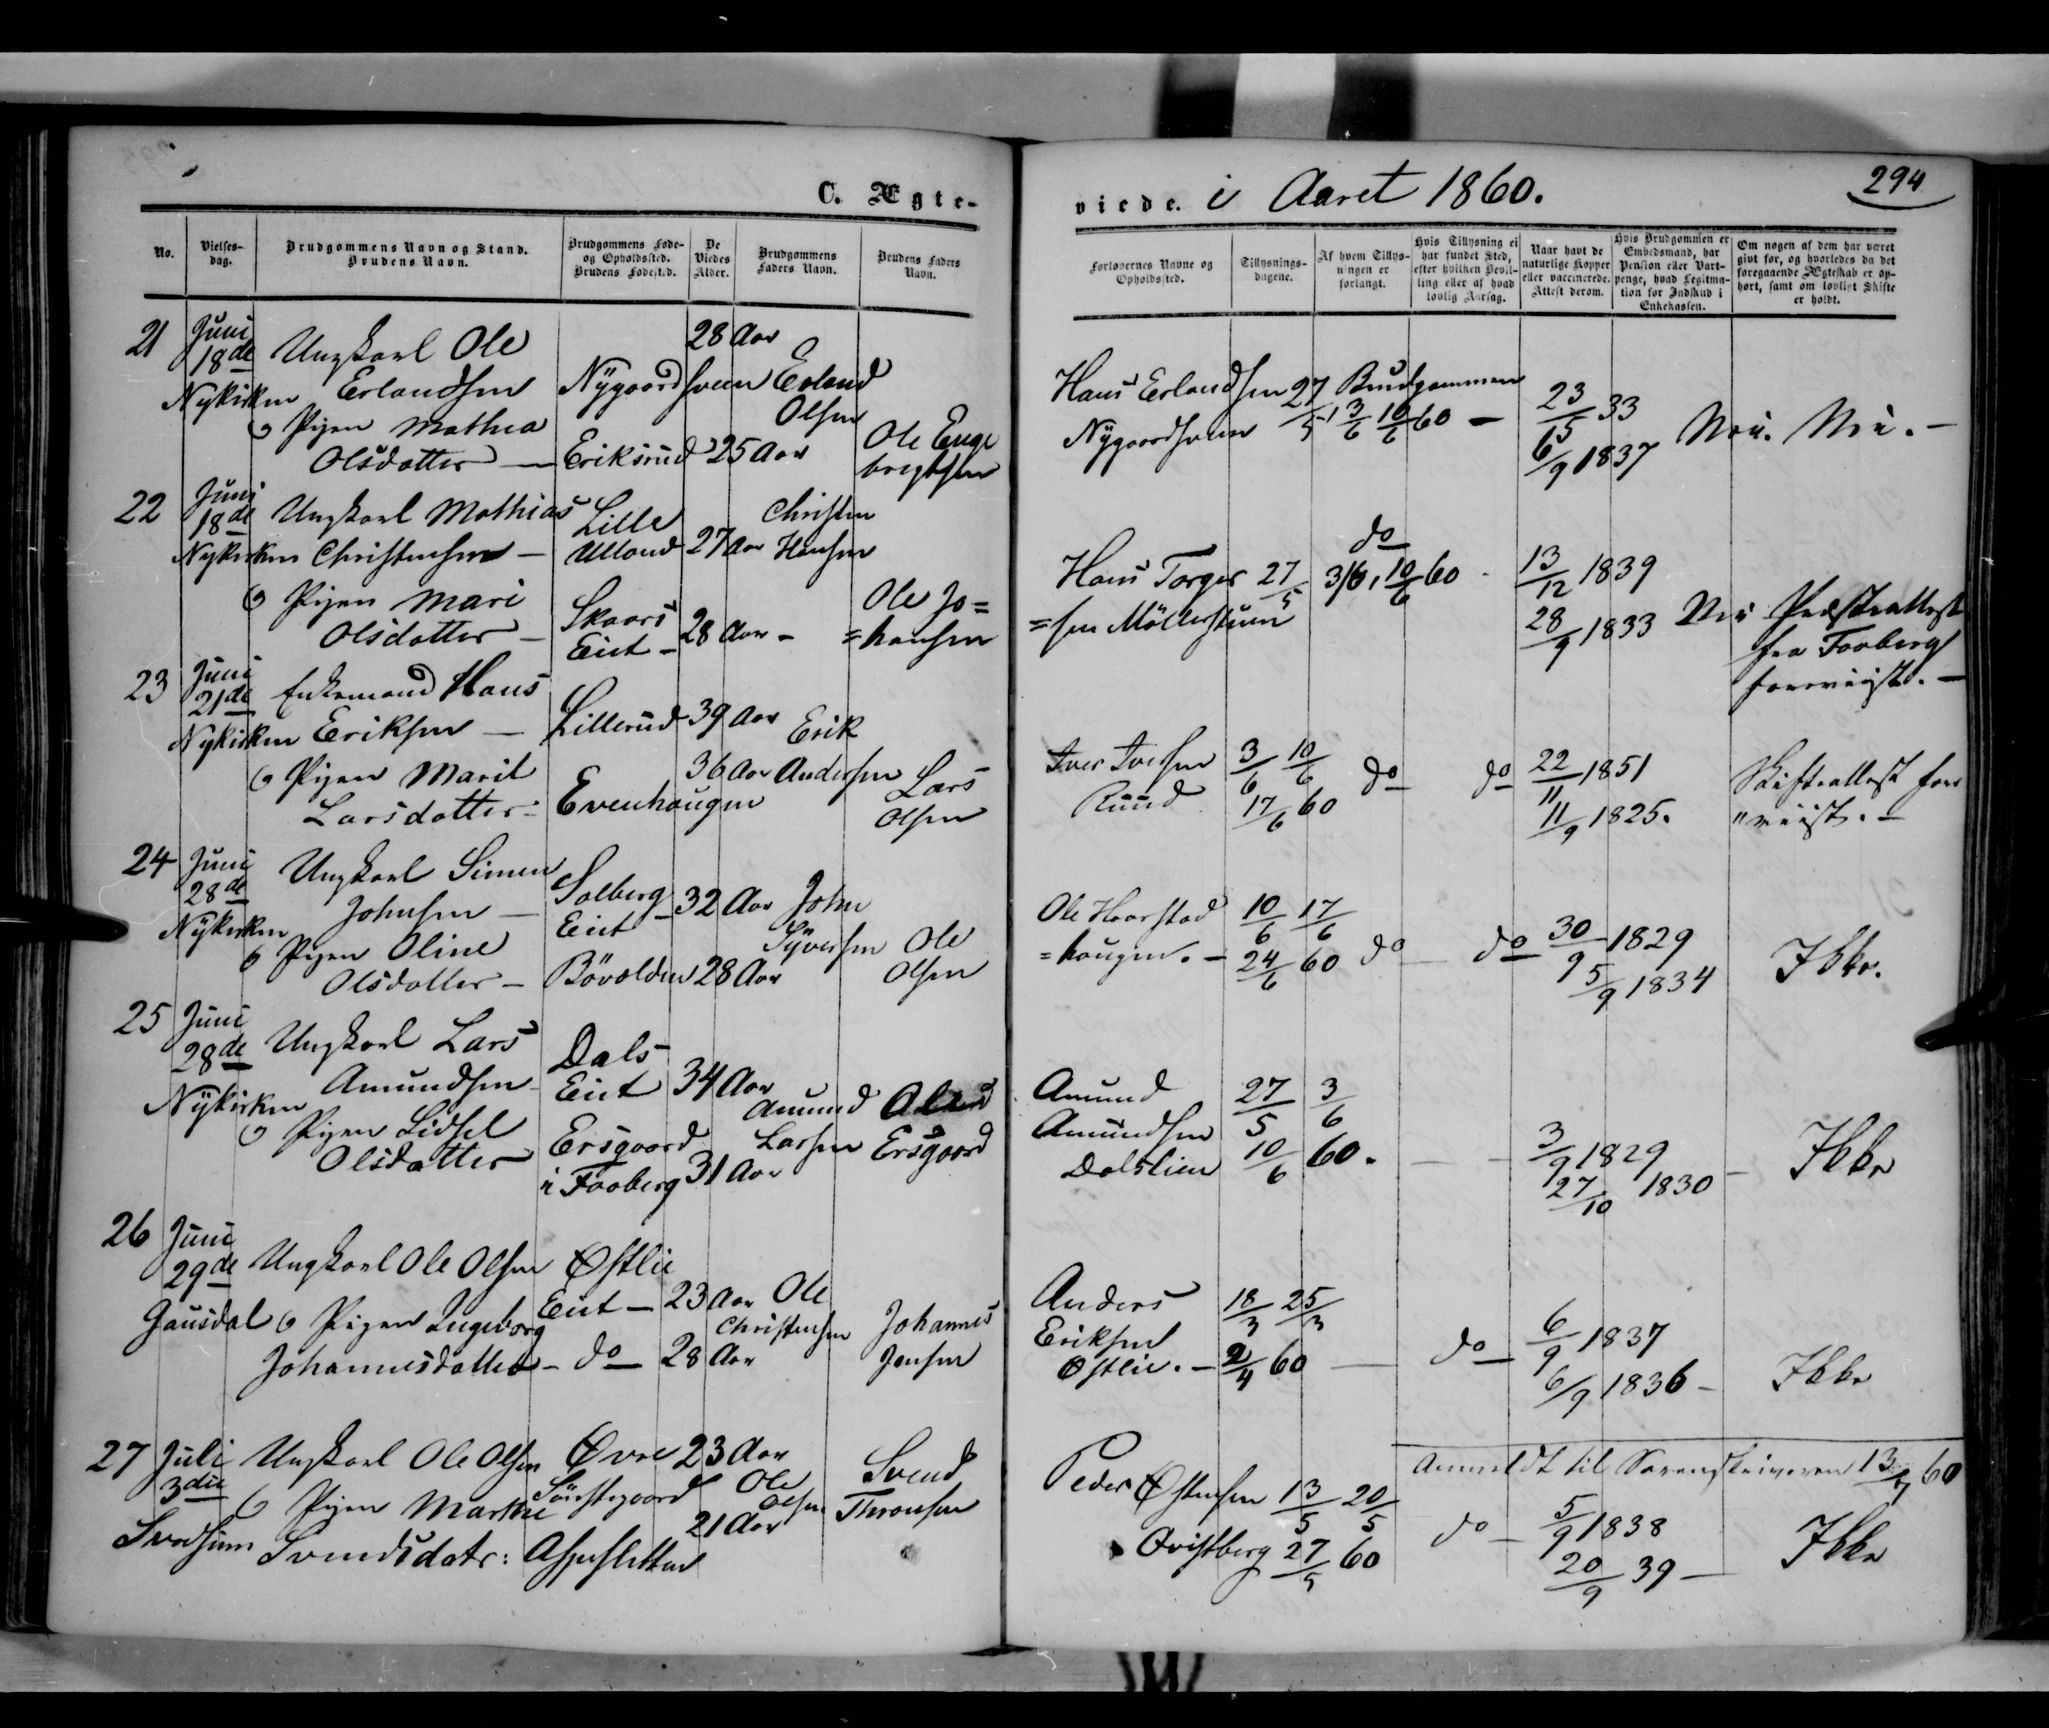 C. Ægte-
viede. i Aaret 1860.
294
No.
Vielses-
dag.
Brudgommens Navn og Stand.
Brudens Navn.
Brudgommens Føde-
og Opholdssted.
Brudens Fødest.d.
De
Viedes
Alder.
Brudgommens
Faders Navn.
Brudens Faders
Navn.
Forlovernes Navne og
Opholdssted.
Tillysnings-
dagene.
Af hvem Tillys-
ningen er
forlangt.
Hvis Tillysning ei
har fundet Sted,
efter hvilken Bevil-
ling eller af hvad
lovlig Aarsag.
Naar havt de
naturlige Kopper
eller vaccinerede.
Attest derom.
Hvis Brudgommen er
Embedsmand, har
Pension eller Vart-
penge, hvad Legitma-
tion for Indskud i
Enkekassen.
Om nogen af dem har været
givt før, og hvorledes da det
foregaaende Ægteskab er op-
hørt, samt om lovligt Skifte
er holdt.
21 Juni
18de
Nykirken
Ungkarl Ole
Erlandsen
Nygaardsveen
28 Aar
Erland
Olsen
og Pigen Mathea
Olsdatter —
Eriksrud
25 Aar
Ole Enge
bregtsen
Hans Erlandsen
Nygaardsveen
27/5 3/6 10/6 60 —
Brudgommen
23/5 33
6/9 1837
Nei. Nei. —
22 Juni
18de
Nykirken
Ungkarl Mathias
Christensen —
Lille
Ulland
27 Aar
Christen
Hansen
og Pigen Mari
Olsdatter —
Skaars
Eiet —
28 Aar —
Ole Jo=
=hansen
Hans Torger
=sen Möllerstuen
27/5 3/6, 10/6 60
do
13/12 1839
28/9 1833
Nei Præsteattest
fra Faaberg
foreviist. —
23 Juni
21de
Nykirken
Enkemand Hans
Eriksen —
Lillerud
39 Aar
Erik
Andersen
og Pigen Marit
Larsdatter
Evenhaugen
36 Aar
Lars
Olsen
Iver Iversen
Ruud
3/6 10/6
17/6 60
do
do
22/11 1851
11/9 1825.
Skifteattest fore
"viist. —
24 Juni
28de
Nykirken
Ungkarl Simen
Johnsen —
Solberg
Eiet
32 Aar
John
Syversen
og Pigen Oline
Olsdatter —
Bövolden
28 Aar
Ole
Olsen
Ole Haarstad
=haugen. —
10/6 17/6
24/6 60
do
do
30/9 1829
5/9 1834
Ikke.
25 Juni
28de
Nykirken
Ungkarl Lars
Amundsen
Dals
Eiet
34 Aar
Amund
Larsen
og Pigen Lidsel
Olsdatter
Ersgaard
i Faaberg
31 Aar
Ersgaard
Amund
Amundsen
Dalslien
27/5 3/6
10/6 60.
3/9 1829
27/10 1830
Ikke
26 Juni
29de
Gausdal
Ungkarl Ole Olsen
Østlie
Eiet —
23 Aar
Ole
Christensen
og Pigen Ingeborg
Johannesdatter —
do
28 Aar
Johannes
Jensen
Anders
Eriksen
Østlie. —
18/3 25/3
2/4 60
do
6/9 1837
6/9 1836 —
Ikke
27 Juli
3die
Svatsum
Ungkarl Ole Olsen
Øvre
23 Aar
Ole
Olsen
og Pigen Marthe
Svendsdatr:
21 Aar
Svend
Thronsen
Peder Østensen
Qvistberg
13/5 20/5
27/5 60
do —
Anmeldt til Sorenskriveren 13/7 60
5/9 1838
20/9 39 —
Ikke